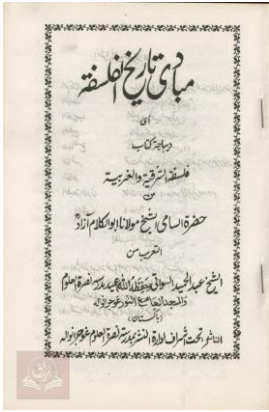 مبادی تاریخ الفلسفة
ای
دیباجۂ کتاب
فلسفة الشرقیة والغربیة
من
حضرة السامی الشیخ مولانا ابو الکلام آزادؒ
التعریب من
الشیخ عبدالحمید السواتی حفظہ اللہ عمید مدرسہ نصرة العلوم
والمسجد الجامع النور غوجرانوالہ
(باکستان)
الناشر، تحت اشراف ادارة النشر مدرسة نصرة العلوم غوجرانوالہ